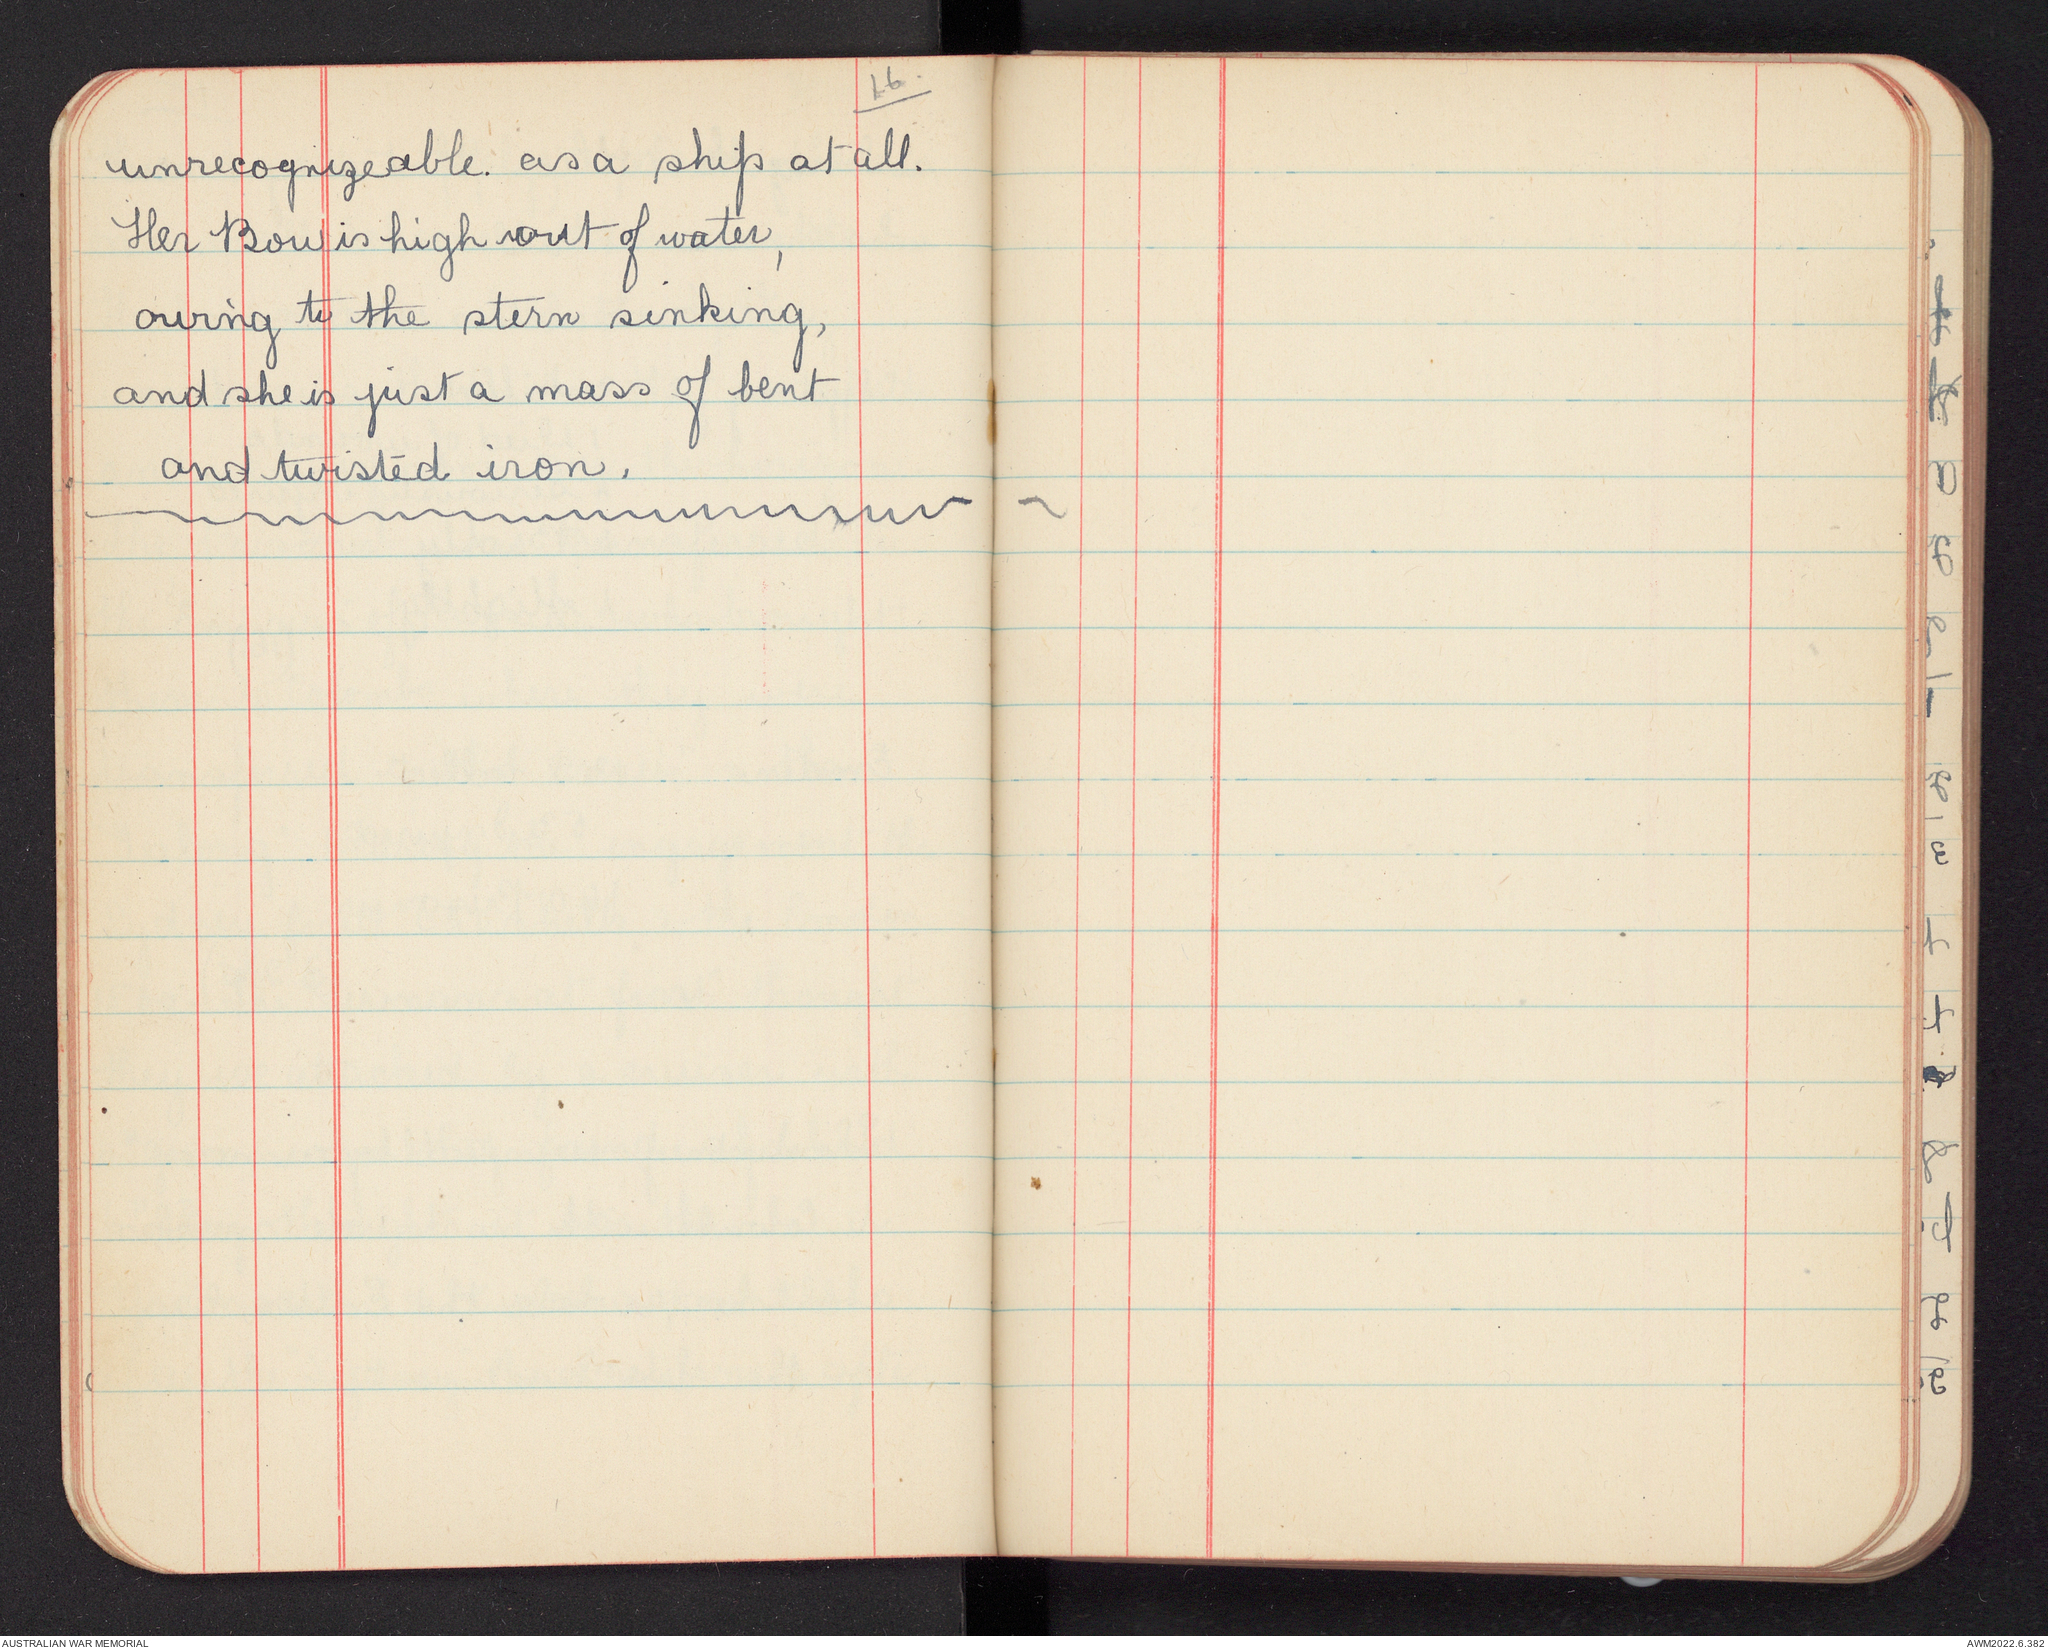 unrecognizeable. as a ship at all.
Her Bow is high out of water,
owing to the stern sinking,
and she is just a mass of bent
and twisted iron.
AUSTRALIAN WAR MEMORIAL
AWM2022.6.382